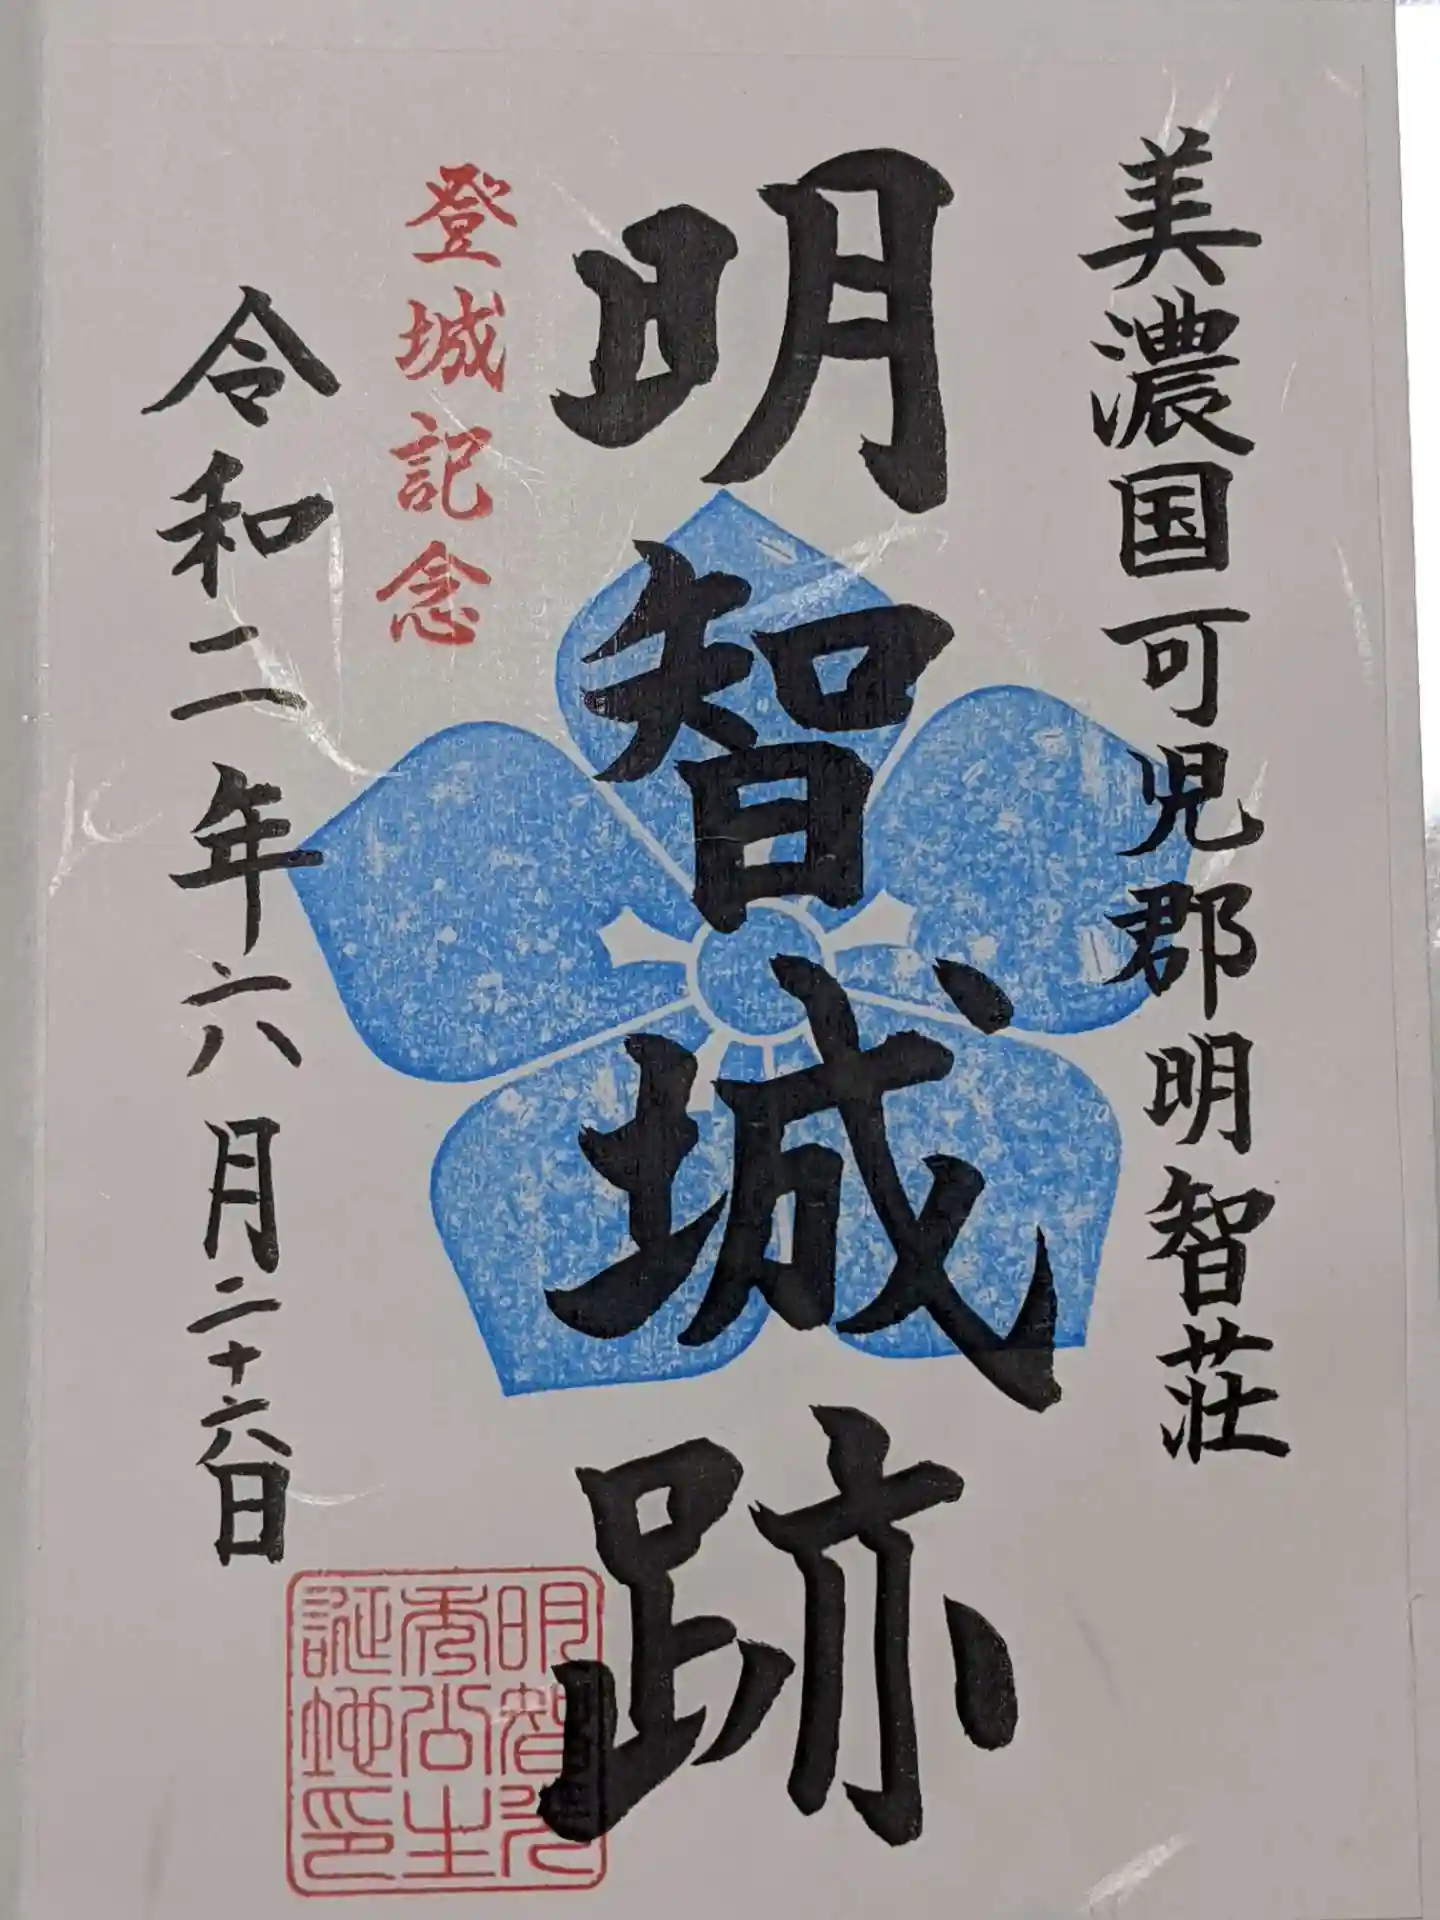 美濃国可児郡明智荘
明智城跡
登城記念
令和二年六月二十六日
明智光
秀公生
誕地印